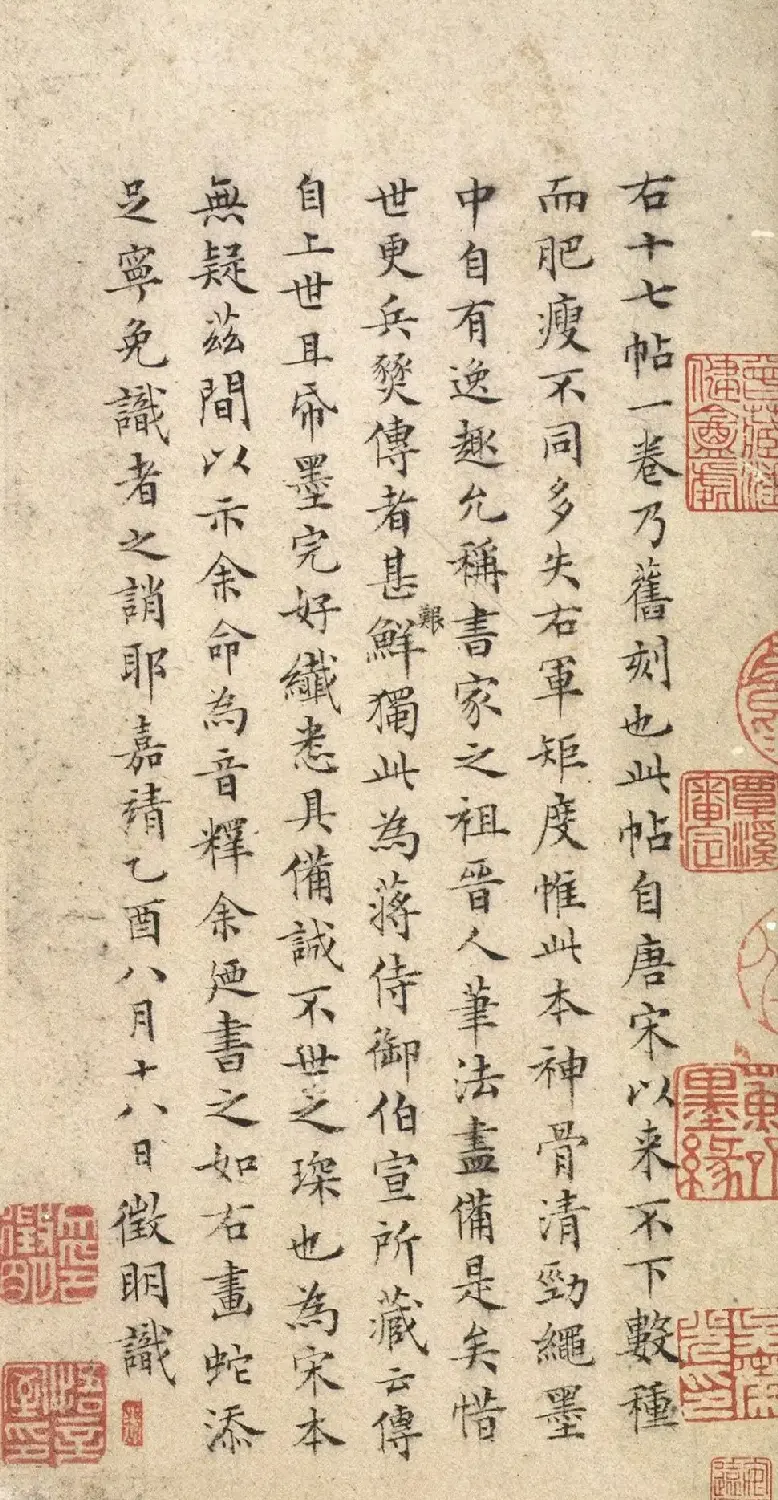 右十七帖一卷乃舊刻也此帖自唐宋以来不下數種
而肥瘦不同多失右軍矩度惟此本神骨清勁繩墨
中自有逸趣允稱書家之祖晉人筆法盡備是矣惜
世更兵燹傳者甚鮮獨此為蔣侍御伯宣所藏云傳
艱
自上世且帋墨完好纖悉具備誠不世之琛也為宋本
無疑茲間以示余命為音釋余廼書之如右畫蛇添
足寧免識者之誚耶嘉靖乙酉八月十八日徵明識
覃溪審定
墨緣
徵明
悟言室印